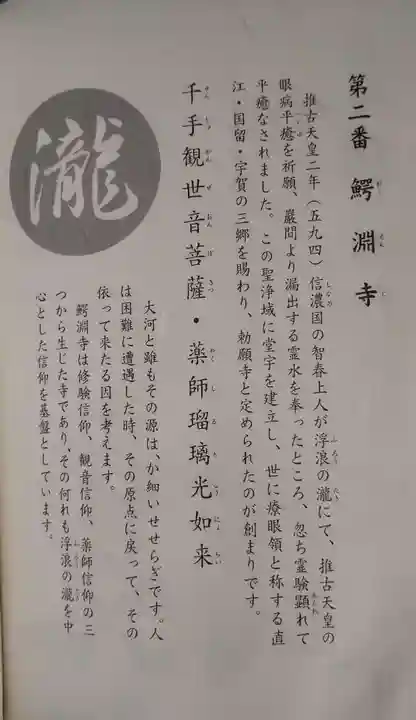 第二番 鰐淵寺
推古天皇二年（五九四）信濃国の智春上人が浮浪の瀧にて、推古天皇の
眼病平癒を祈願、巌間より漏出する霊水を奉ったところ、忽ち霊験顕れて
平癒なされました。この聖浄域に堂宇を建立し、世に療眼領と称する直
江・国留・宇賀の三郷を賜わり、勅願寺と定められたのが創まりです。
千手観世音菩薩・薬師瑠璃光如来
瀧
大河と雖もその源は、か細いせせらぎです。人
は困難に遭遇した時、その原点に戻って、その
依って来たる因を考えます。
鰐淵寺は修験信仰、観音信仰、薬師信仰の三
つから生じた寺であり、その何れも浮浪の瀧を中
心とした信仰を基盤としています。